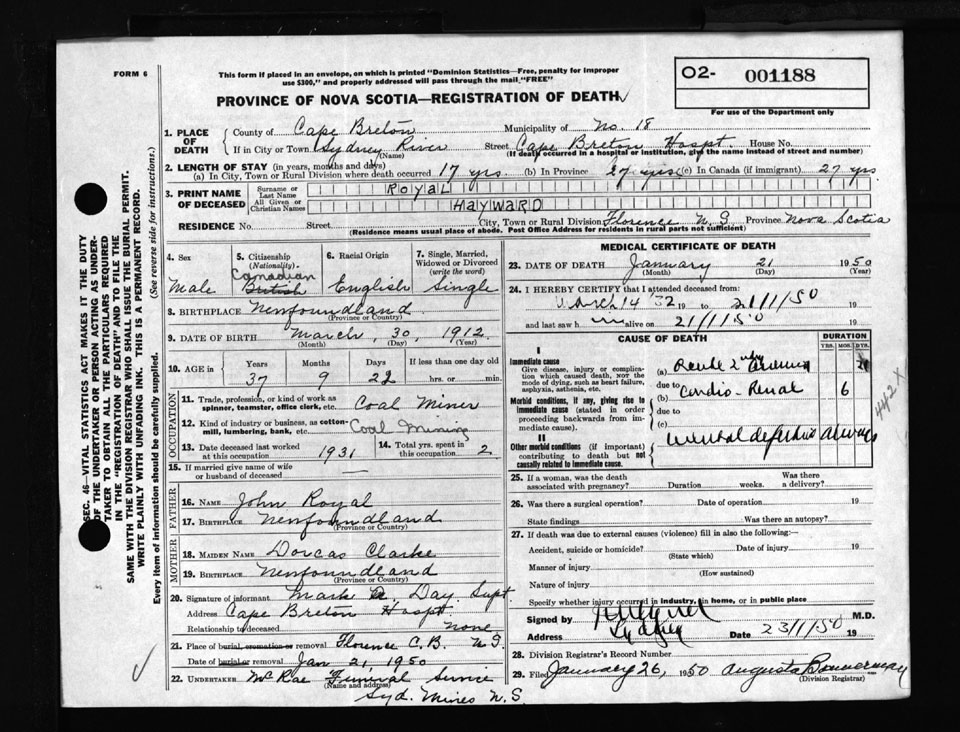 FORM 6
This form if placed in an envelope, on which is printed "Dominion Statistics—Free, penalty for improper
use $300," and properly addressed will pass through the mail "FREE"
O2- 001188
For use of the Department only
PROVINCE OF NOVA SCOTIA—REGISTRATION OF DEATH
1. PLACE OF DEATH
County of Cape Breton Municipality of No. 18
If in City or Town Sydney River Street Cape Breton Hospt. House No.
(Name) (If death occurred in a hospital or institution, give the name instead of street and number)
2. LENGTH OF STAY (in years, months and days)
(a) In City, Town or Rural Division where death occurred 17 yrs. (b) In Province 27 yrs (c) In Canada (if immigrant) 27 yrs
3. PRINT NAME OF DECEASED
Surname or Last Name ROYAL
All Given or Christian Names HAYWARD
RESIDENCE No. Street City, Town or Rural Division Florence N.S Province Nova Scotia
(Residence means usual place of abode. Post Office Address for residents in rural parts not sufficient)
4. Sex Male
5. Citizenship (Nationality) Canadian British
6. Racial Origin English
7. Single, Married, Widowed or Divorced (write the word) Single
8. BIRTHPLACE Newfoundland
(Province or Country)
9. DATE OF BIRTH March, 30, 1912
(Month) (Day) (Year)
10. AGE in Years 37 Months 9 Days 22 If less than one day old hrs. or min.
OCCUPATION
11. Trade, profession, or kind of work as spinner, teamster, office clerk, etc. Coal Miner
12. Kind of industry or business, as cotton-mill, lumbering, bank, etc. Coal Mining
13. Date deceased last worked at this occupation 1931
14. Total yrs. spent in this occupation 2
15. If married give name of wife or husband of deceased —
FATHER
16. Name John Royal
17. Birthplace Newfoundland
(Province or Country)
MOTHER
18. Maiden Name Dorcas Clarke
19. Birthplace Newfoundland
(Province or Country)
20. Signature of informant Mark A. Day Supt.
Address Cape Breton Hospt
Relationship to deceased none
21. Place of burial, cremation or removal Florence C.B. N.S.
Date of burial or removal Jan 21, 1950
22. UNDERTAKER McRae Funeral Service
(Name and address)
Syd. Mines N.S.
MEDICAL CERTIFICATE OF DEATH
23. DATE OF DEATH January 21 1950
(Month) (Day) (Year)
24. I HEREBY CERTIFY that I attended deceased from:
March 14 32 19 to 21/1/50 19
and last saw h im alive on 21/1/50 19
CAUSE OF DEATH
DURATION
YRS. MOS. DYS.
I
Immediate cause
Give disease, injury or complication which caused death, not the mode of dying, such as heart failure, asphyxia, asthenia, etc.
(a)
due to
Morbid conditions, if any, giving rise to immediate cause (stated in order proceeding backwards from immediate cause).
(b) Cardio-Renal 6
due to
(c)
II
Other morbid conditions (if important) contributing to death but not causally related to immediate cause.
mental defective always
442 X
25. If a woman, was the death associated with pregnancy? Duration weeks. Was there a delivery?
26. Was there a surgical operation? Date of operation 19
State findings Was there an autopsy?
27. If death was due to external causes (violence) fill in also the following:—
Accident, suicide or homicide? Date of injury 19
(State which)
Manner of injury
(How sustained)
Nature of injury
Specify whether injury occurred in industry, in home, or in public place
Signed by M.D.
Address Sydney Date 23/1/50 19
28. Division Registrar's Record Number
29. Filed January 26, 1950 Augusta Bannerman
(Division Registrar)
SEC. 46—VITAL STATISTICS ACT MAKES IT THE DUTY
OF THE UNDERTAKER OR PERSON ACTING AS UNDER-
TAKER TO OBTAIN ALL THE PARTICULARS REQUIRED
IN THE "REGISTRATION OF DEATH" AND TO FILE THE
SAME WITH THE DIVISION REGISTRAR WHO SHALL ISSUE THE BURIAL PERMIT.
WRITE PLAINLY WITH UNFADING INK. THIS IS A PERMANENT RECORD.
Every item of information should be carefully supplied. (See reverse side for instructions.)